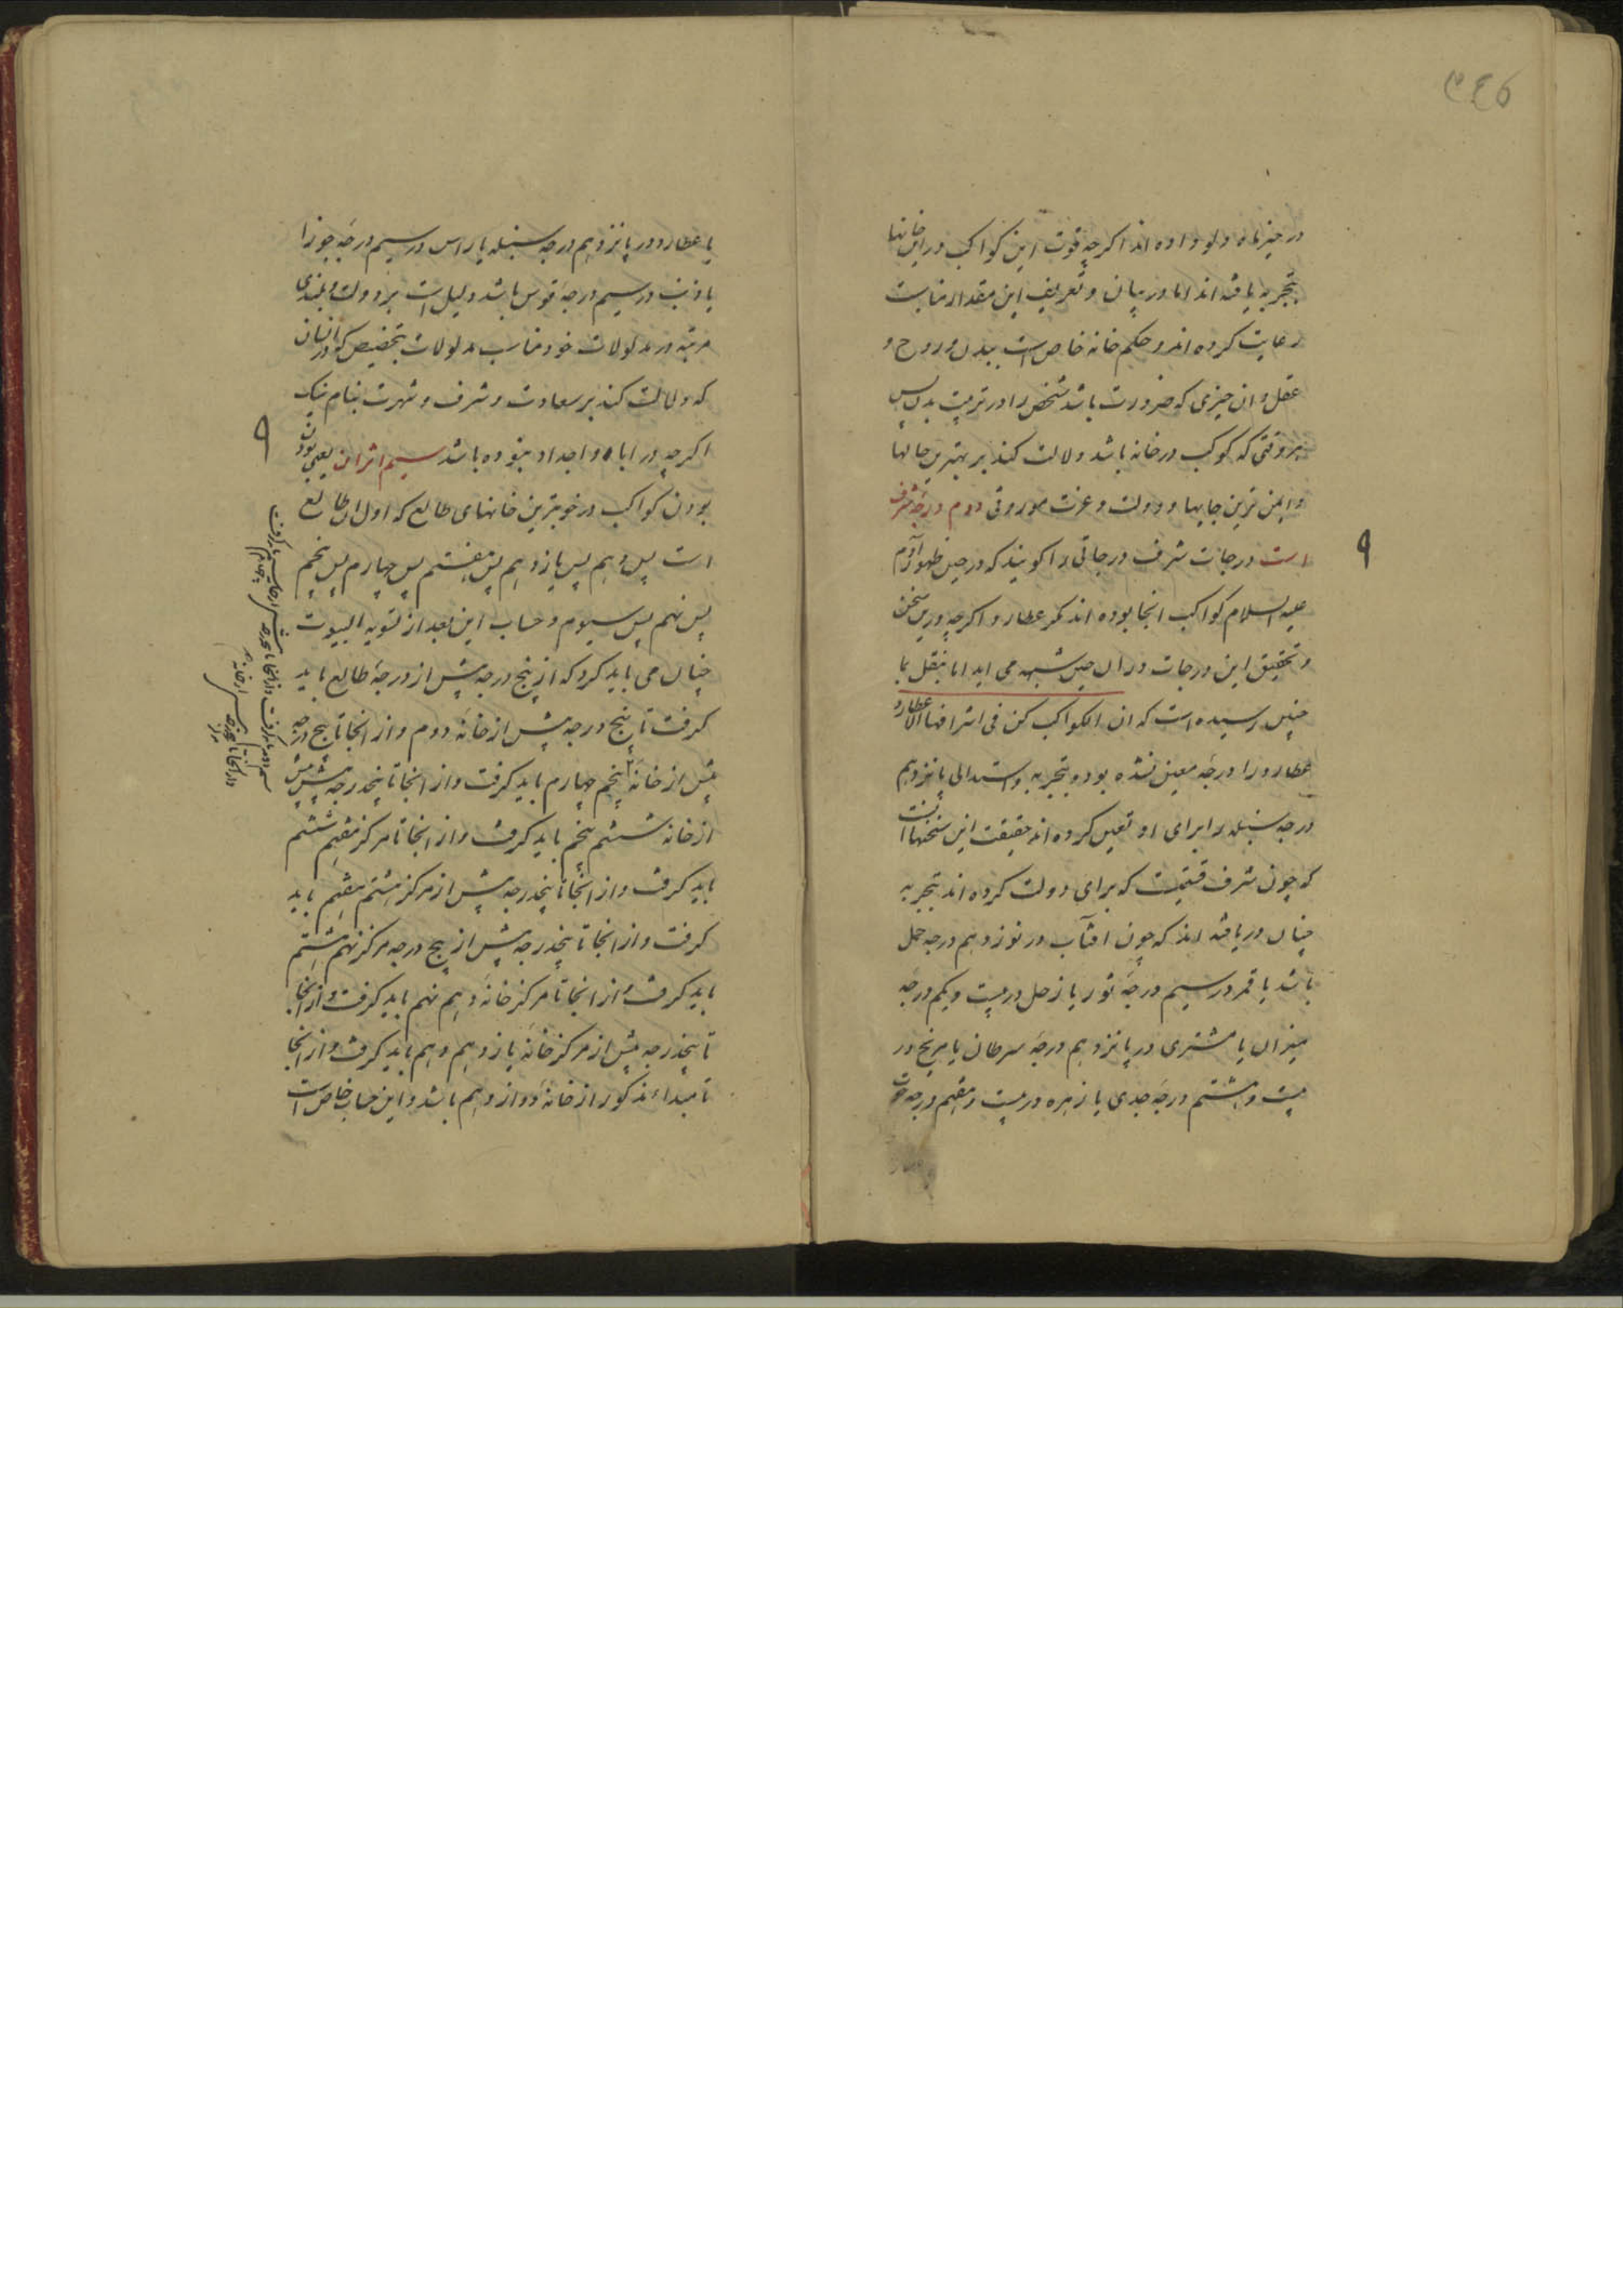 ۳۴۶
در خیزماه و لو داده اند اکرچه قوت این کواکب در این خانها
بتجربه یافته اند اما در بیان و تعریف این مقدار مناسبت
رعایت کرده اند و حکم خانه خاص است ببدن و روح و
عقل و ان چیزی که ضرورت باشد شخص را در تربیت بدن پس
هر وقتی که کوکب در خانه باشد دلالت کند بر بهترین حالها
و ایمن ترین جایها و دولت و عزت موروثی دوم درجه شرف
است درجات شرف درجاتی را کویند که در حین ظهور آدم
علیه السلام کواکب انجا بوده اند مکر عطارد اکرچه درین سخن
و تحقیق این درجات در ان حین شبهه می اید اما بنقل بما
چنین رسیده است که ان الکواکب کن فی اشرافها الا عطارد
عطارد را درجه معین نشده بود و بتجربه و استدلال پانزدهم
درجه سنبله را برای او تعیین کرده اند حقیقت این سخنها انست
که چون شرف قسمیست که برای دولت کرده اند بتجربه
چنان دریافته اند که چون افتاب در نوزدهم درجه حمل
باشد یا قمر در سیم درجه ثور یا زحل در بیست و یکم درجه
میزان یا مشتری در پانزدهم درجه سرطان یا مریخ در
بیست و هشتم درجه جدی یا زهره در بیست و هفتم درجه حوت
یا عطارد در پانزدهم درجه سنبله یا راس در سیم درجه جوزا
یا ذنب در سیم درجه قوس باشد دلیل است بر دولت و بلندی
مرتبه در مدلولات خود مناسب مدلولات بتخصیص که در انسان
که دلالت کند بر سعادت و شرف و شهرت بنام نیک
اکرچه در اباء و اجداد نبوده باشد سیم اثران یعنی بودن
بودن کواکب در خوبترین خانهای طالع که اول ان طالع
است پس دهم پس یازدهم پس هفتم پس چهارم پس پنجم
پس نهم پس سیوم و حساب این بعد از تسویه البیوت
چنان می باید کرد که از پنج درجه پیش از درجه طالع باید
کرفت تا پنج درجه پیش از خانه دوم و از انجا تا پنج درجه
پیش از خانه پنجم چهارم باید کرفت و از انجا تا پنجدرجه پیش
از خانه ششم پنجم باید کرفت و از انجا تا مرکز هفتم ششم
باید کرفت و از انجا تا پنجدرجه پیش از مرکز هشتم هفتم باید
کرفت و از انجا تا پنجدرجه پیش از پنج درجه مرکز نهم هشتم
باید کرفت و از انجا تا مرکز خانه دهم نهم باید کرفت و از انجا
تا پنجدرجه پیش از مرکز خانه یازدهم دهم باید کرفت و از انجا
تا مبداء مذکور از خانه دوازدهم باشد و این حساب خاص است